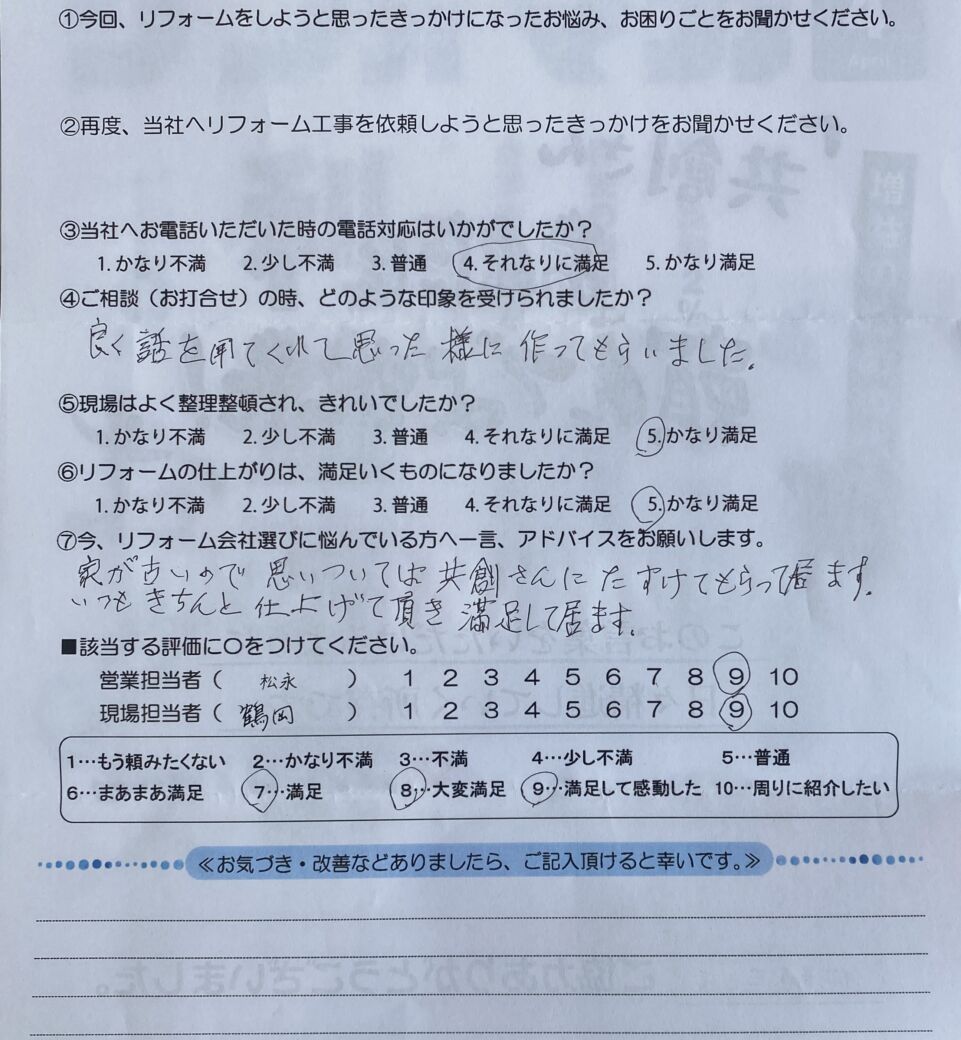 ①今回、リフォームをしようと思ったきっかけになったお悩み、お困りごとをお聞かせください。
②再度、当社へリフォーム工事を依頼しようと思ったきっかけをお聞かせください。
③当社へお電話いただいた時の電話対応はいかがでしたか？
1.かなり不満 2.少し不満 3.普通 4.それなりに満足 5.かなり満足
④ご相談（お打合せ）の時、どのような印象を受けられましたか？
良く話を聞てくれて思った様に作ってもらいました。
⑤現場はよく整理整頓され、きれいでしたか？
1.かなり不満 2.少し不満 3.普通 4.それなりに満足 5.かなり満足
⑥リフォームの仕上がりは、満足いくものになりましたか？
1.かなり不満 2.少し不満 3.普通 4.それなりに満足 5.かなり満足
⑦今、リフォーム会社選びに悩んでいる方へ一言、アドバイスをお願いします。
家が古いので思いついては共創さんにたすけてもらって居ます。
いつもきちんと仕上げて頂き満足して居ます。
■該当する評価に〇をつけてください。
営業担当者（ 松永 ） 1 2 3 4 5 6 7 8 9 10
現場担当者（ 鶴岡 ） 1 2 3 4 5 6 7 8 9 10
1…もう頼みたくない 2…かなり不満 3…不満 4…少し不満 5…普通
6…まあまあ満足 7…満足 8…大変満足 9…満足して感動した 10…周りに紹介したい
≪お気づき・改善などありましたら、ご記入頂けると幸いです。≫